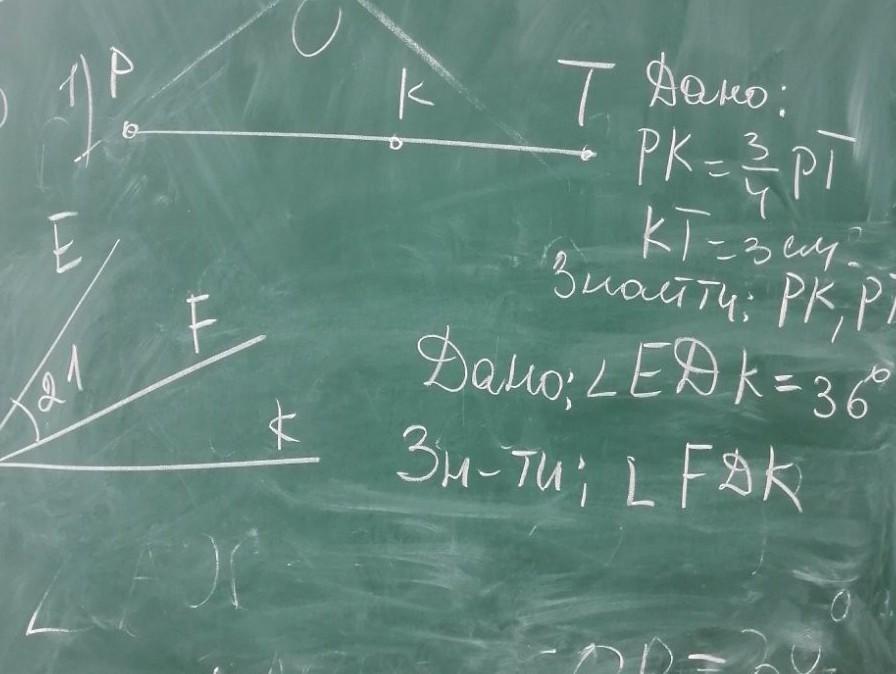 1) P K T Дано:
PK = 3/4 PT
KT = 3 см.
Знайти: PK, PT
E
F
21
K
Дано: ∠EDK = 36°
Зн-ти: ∠FDK